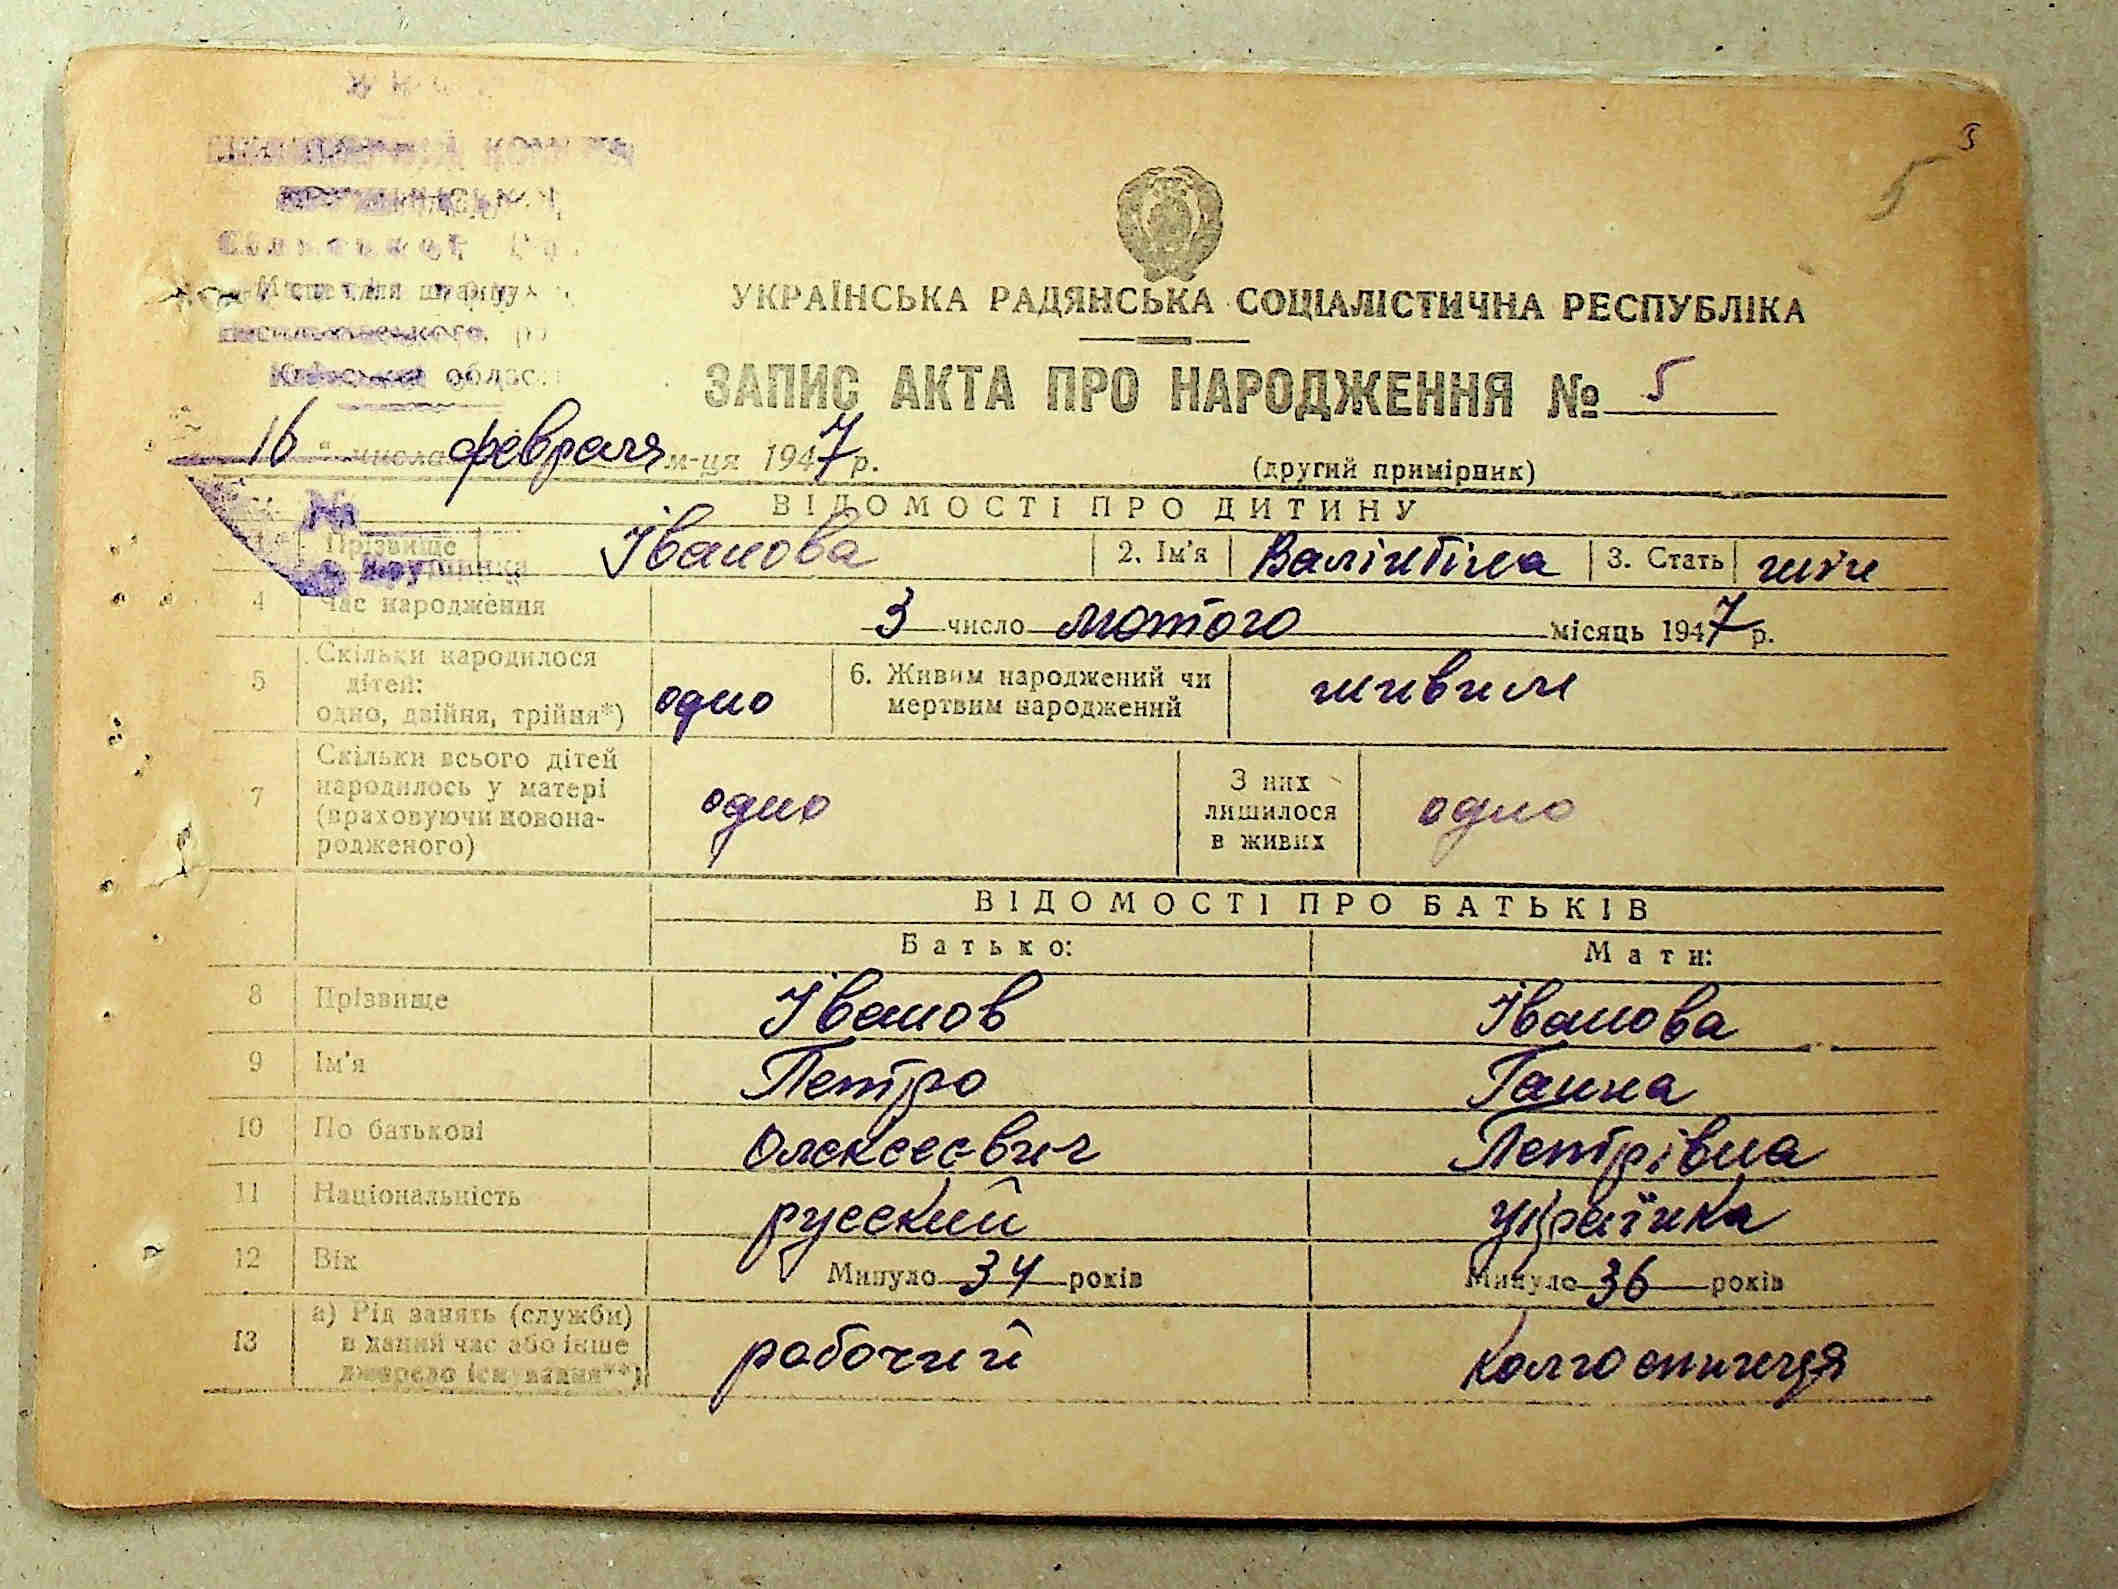 5
3
УКРАЇНСЬКА РАДЯНСЬКА СОЦІАЛІСТИЧНА РЕСПУБЛІКА
ЗАПИС АКТА ПРО НАРОДЖЕННЯ № 5
16 " числа февраля м-ця 1947 р.
(другий примірник)
ВІДОМОСТІ ПРО ДИТИНУ
1 Прізвище Іванова 2. Ім'я Валінтіна 3. Стать жін
4 Час народження 3 число лютого місяць 1947 р.
5 Скільки народилося дітей: одно, двійня, трійня*) одно 6. Живим народжений чи мертвим народжений живим
7 Скільки всього дітей народилось у матері (враховуючи новонародженого) одно З них лишилося в живих одно
ВІДОМОСТІ ПРО БАТЬКІВ
Батько: Мати:
8 Прізвище Іванов Іванова
9 Ім'я Петро Ганна
10 По батькові Олексеєвич Петрівна
11 Національність русский українка
12 Вік Минуло 34 років Минуло 36 років
13 а) Рід занять (служби) в даний час або інше джерело існування**) рабочий колгоспниця